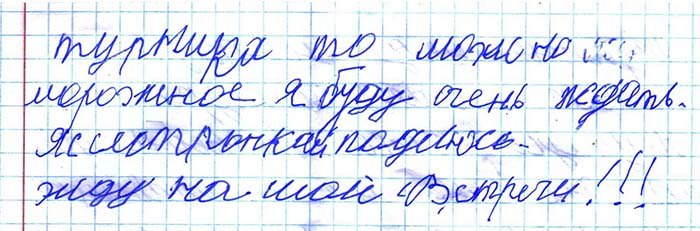 турника то можно
морожное я буду очень ждать.
Я с сестрёнкой поделюсь.
жду на шой Встречи!!!